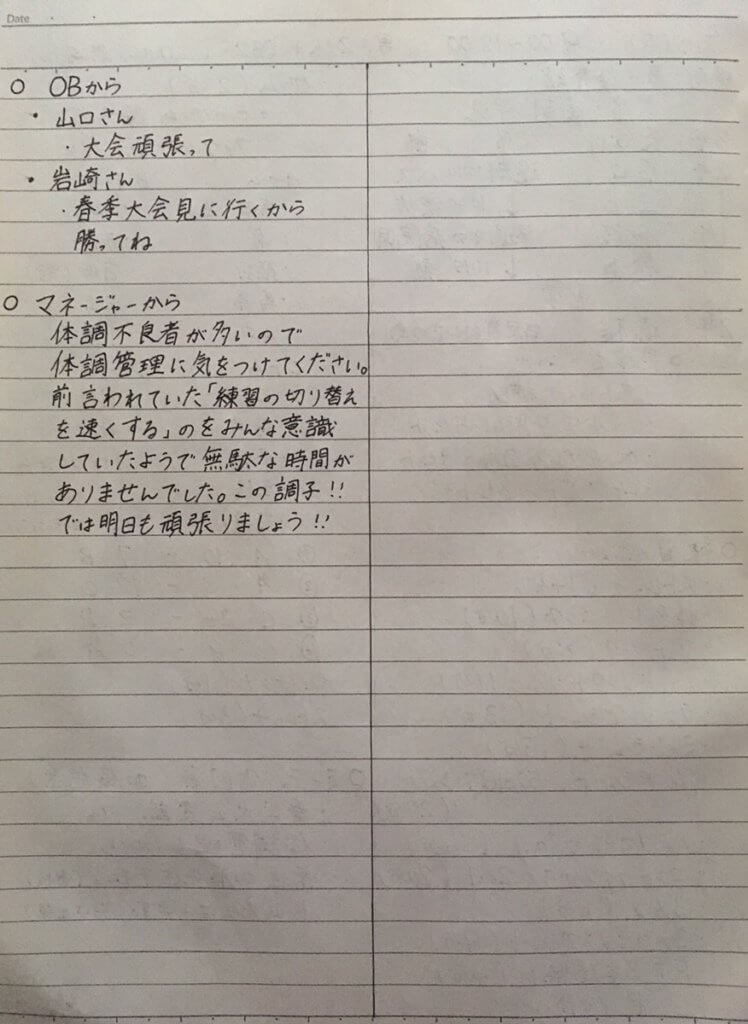 Date
○ OBから
・山口さん
・大会頑張って
・岩崎さん
・春季大会見に行くから
勝ってね
○ マネージャーから
体調不良者が多いので
体調管理に気をつけてください。
前言われていた「練習の切り替え
を速くする」のをみんな意識
していたようで無駄な時間が
ありませんでした。この調子!!
では明日も頑張りましょう!!